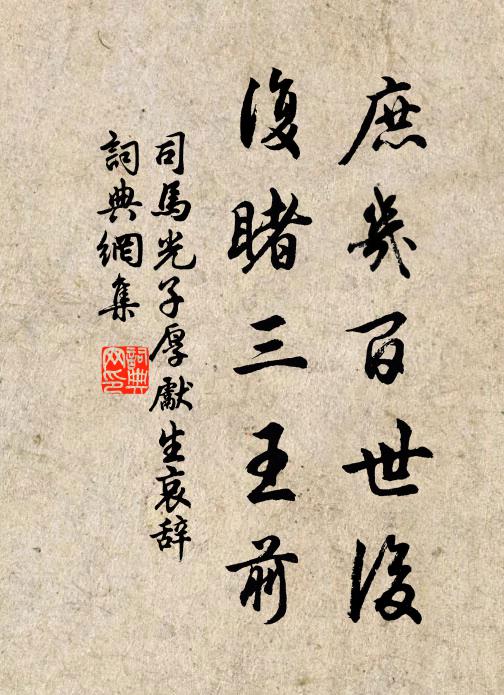 庶幾百世後
復睹三王前
司馬光子厚獻生哀辞
詞典網集
詞典
网印